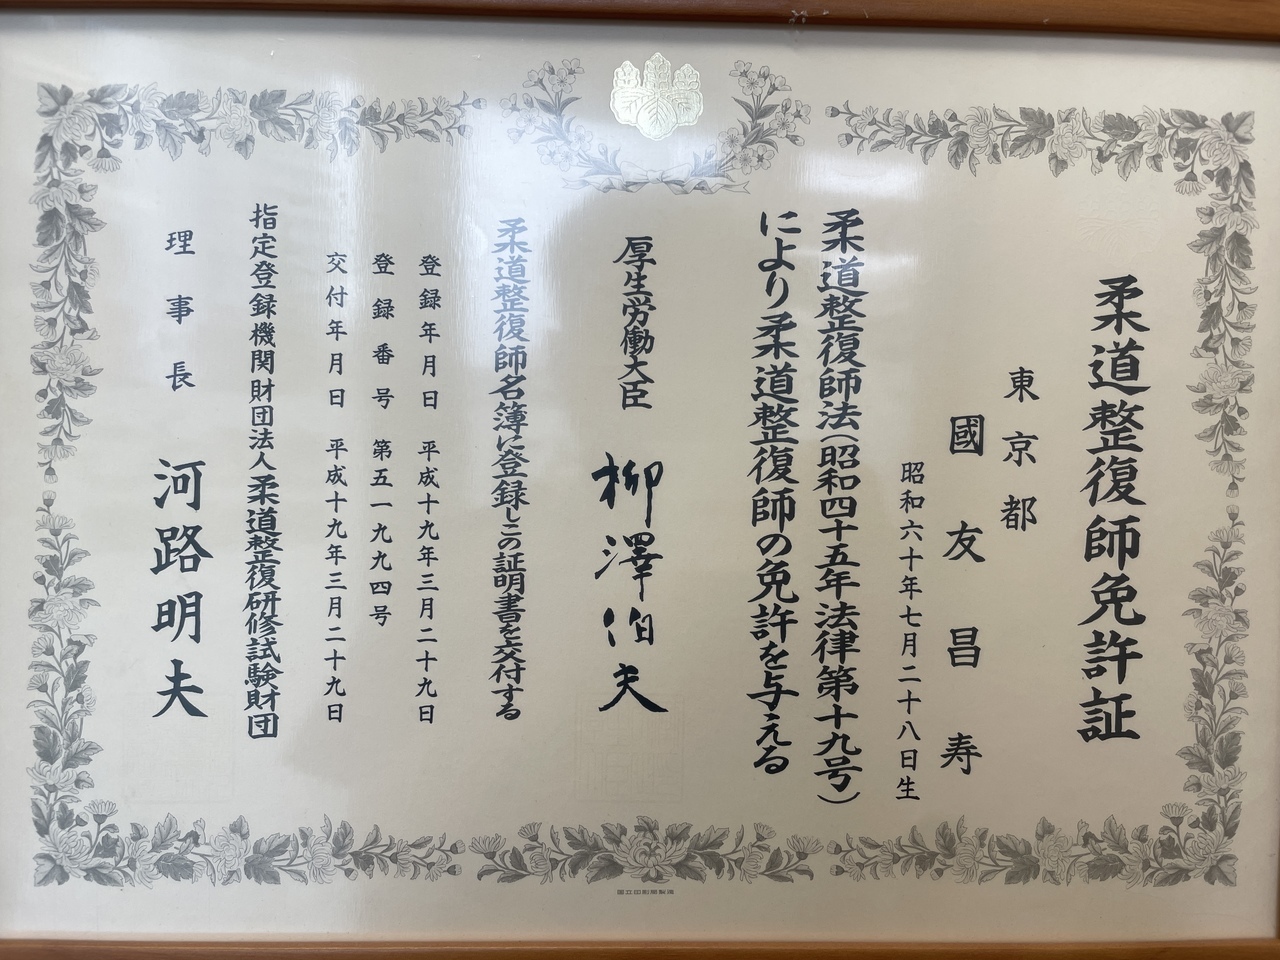 柔道整復師免許証
東京都
國友昌寿
昭和六十年七月二十八日生
柔道整復師法(昭和四十五年法律第十九号)
により柔道整復師の免許を与える
厚生労働大臣 柳澤伯夫
柔道整復師名簿に登録しこの証明書を交付する
登録年月日 平成十九年三月二十九日
登録番号 第五一九九四号
交付年月日 平成十九年三月二十九日
指定登録機関財団法人柔道整復研修試験財団
理事長 河路明夫
国立印刷局製造